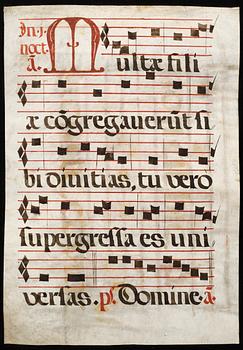 In .j.
noct.
a. Multæ fili
æ cõgregauerũt si
bi diuitias, tu vero
supergressa es uni
versas. ps. Domine. a.